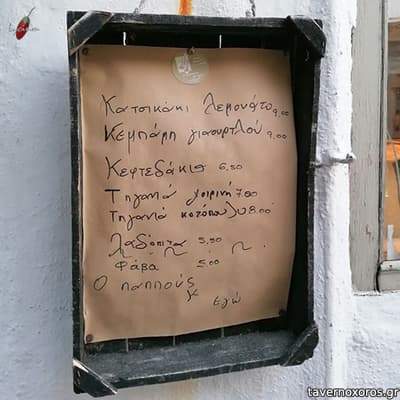 Κατσικάκι λεμονάτο 9,00
Κεμπάπ γιαουρτλού 9,00
Κεφτεδάκια 6,50
Τηγανιά χοιρινή 7.00
Τηγανιά κοτόπουλο 8.00
Λαδόπιτα 5,50
Φάβα 5.00
Ο παππούς
κ εγώ
tavernoxoros.gr